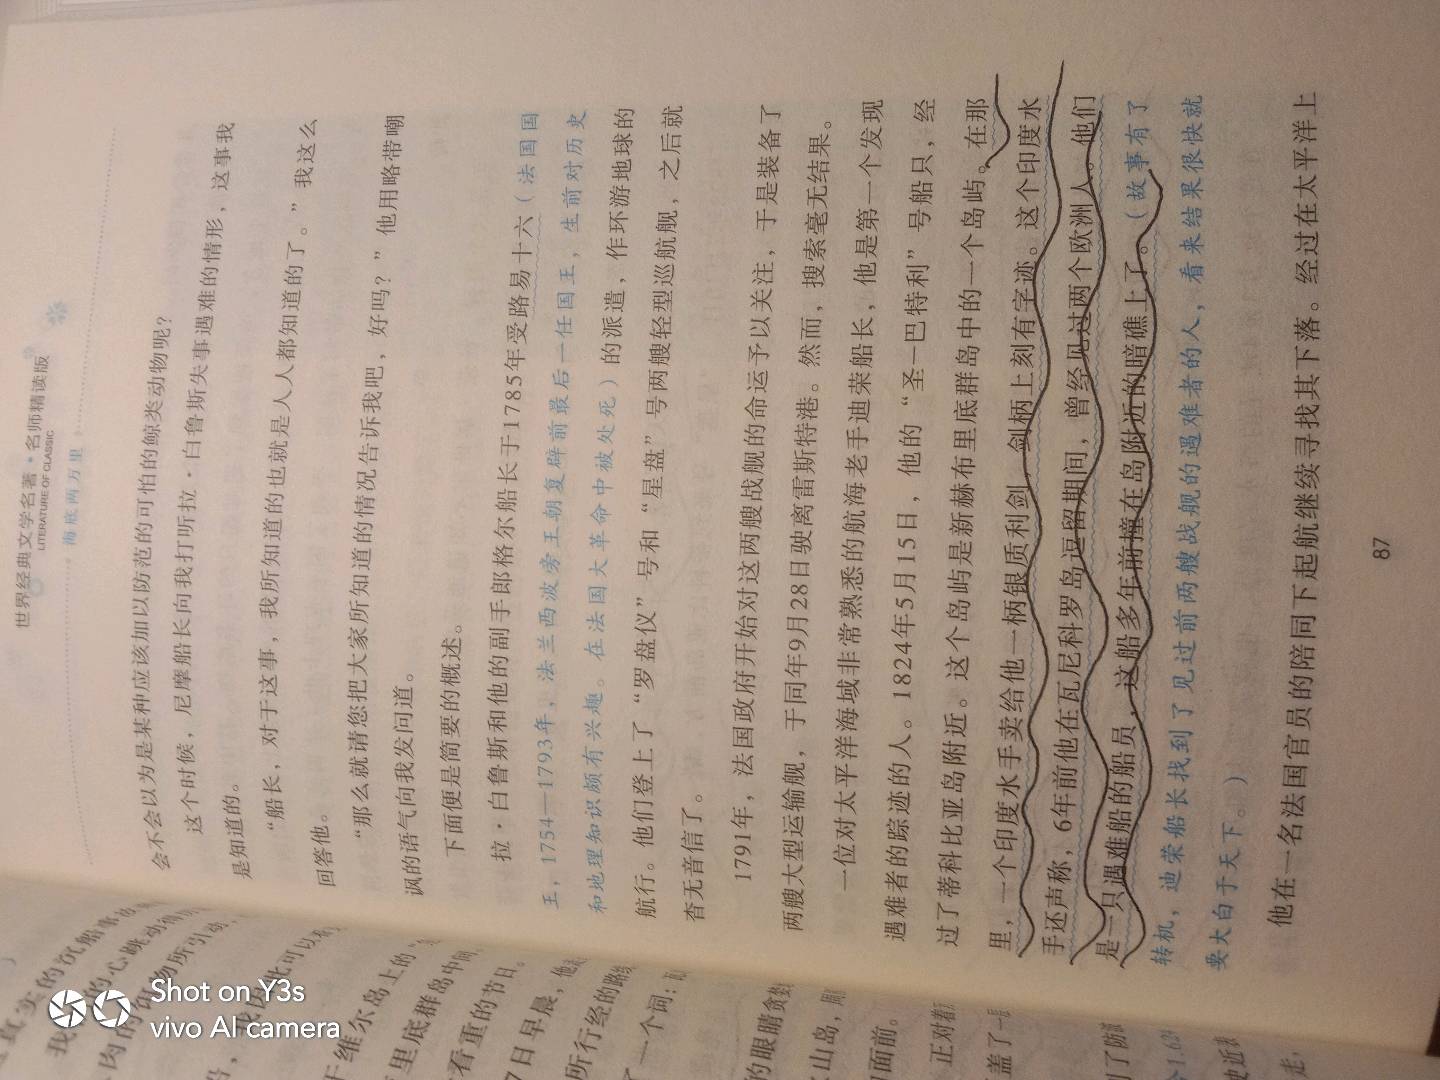 世界经典文学名著·名师精读版
LITERATURE OF CLASSIC
海底两万里
会不会以为是某种应该加以防范的可怕的鲸类动物呢？
这个时候，尼摩船长向我打听拉·白鲁斯失事遇难的情形，这事我
是知道的。
“船长，对于这事，我所知道的也就是人人都知道的了。”我这么
回答他。
“那么就请您把大家所知道的情况告诉我吧，好吗？”他用略带嘲
讽的语气向我发问道。
下面便是简要的概述。
拉·白鲁斯和他的副手郎格尔船长于1785年受路易十六（法国国
王，1754—1793年，法兰西波旁王朝复辟前最后一任国王，生前对历史
和地理知识颇有兴趣。在法国大革命中被处死）的派遣，作环游地球的
航行。他们登上了“罗盘仪”号和“星盘”号两艘轻型巡航舰，之后就
杳无音信了。
1791年，法国政府开始对这两艘战舰的命运予以关注，于是装备了
两艘大型运输舰，于同年9月28日驶离雷斯特港。然而，搜索毫无结果。
一位对太平洋海域非常熟悉的航海老手迪荣船长，他是第一个发现
遇难者的踪迹的人。1824年5月15日，他的“圣-巴特利”号船只，经
过了蒂科比亚岛附近。这个岛屿是新赫布里底群岛中的一个岛屿。在那
里，一个印度水手卖给他一柄银质利剑，剑柄上刻有字迹。这个印度水
手还声称，6年前他在瓦尼科罗岛逗留期间，曾经见过两个欧洲人，他们
是一只遇难船的船员，这船多年前撞在岛附近的暗礁上了。（故事有了
转机，迪荣船长找到了见过前两艘战舰的遇难者的人，看来结果很快就
要大白于天下。）
他在一名法国官员的陪同下起航继续寻找其下落。经过在太平洋上
87
Shot on Y3s
vivo AI camera